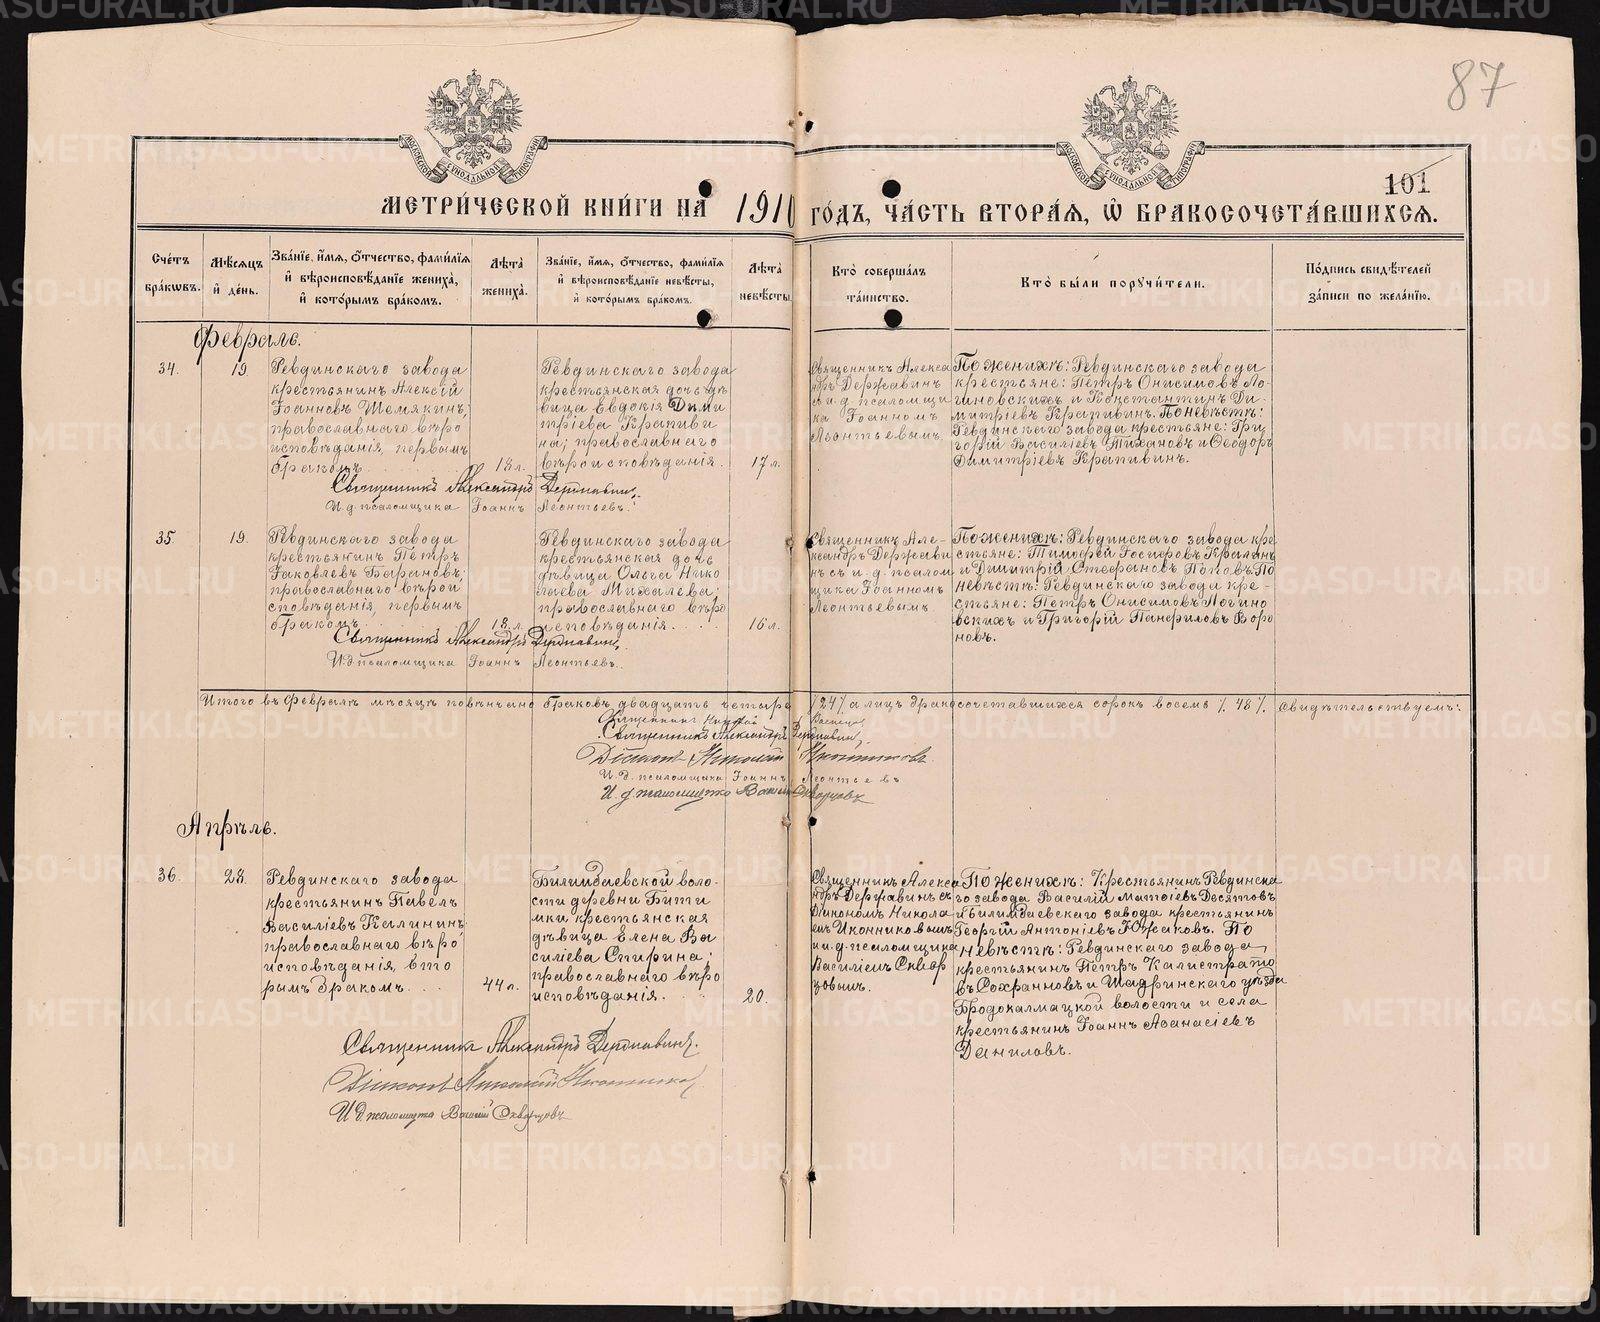 87
101
МОСКОВСКОЙ СѴНОДАЛЬНОЙ ТИПОГРАФІИ
МОСКОВСКОЙ СѴНОДАЛЬНОЙ ТИПОГРАФІИ
МЕТРИ́ЧЕСКОЙ КНИ́ГИ НА 1910 ГО́ДЪ, ЧА́СТЬ ВТОРА́Я, Ѽ БРАКОСОЧЕТА́ВШИХСЯ.
Сче́тъ бра́кѡвъ.
Мѣ́сяцъ и҆ де́нь.
Зва́нїе, и҆́мя, ѻ҆́тчество, фами́лїя и҆ вѣроисповѣ́данїе жениха̀, и҆ кото́рымъ бра́комъ.
Лѣ́та жениха̀.
Зва́нїе, и҆́мя, ѻ҆́тчество, фами́лїя и҆ вѣроисповѣ́данїе невѣ́сты, и҆ кото́рымъ бра́комъ.
Лѣ́та невѣ́сты.
Кто̀ соверша́лъ та́инство.
Кто̀ бы́ли поручи́тели.
По́дпись свидѣ́телей за́писи по жела́нїю.
Февраль.
34.
19.
Ревдинскаго завода
крестьянинъ Алексій
Іоанновъ Шемякинъ,
православнаго вѣро
исповѣданія, первымъ
бракомъ.
18 л.
Ревдинскаго завода
крестьянская дочь дѣ
вица Евдокія Дими
тріева Крапиви
на; православнаго
вѣроисповѣданія.
17 л.
Священникъ Алекса
ндръ Державинъ
с и. д. псаломщи
ка Іоанномъ
Леонтьевымъ
По женихѣ: Ревдинскаго завода
крестьяне: Петръ Онисимовъ Ло-
гиновскихъ и Константинъ Ди-
митріевъ Крапивинъ. По невѣстѣ:
Ревдинскаго завода крестьяне: Гри
горій Васильевъ Тихановъ и Ѳеодоръ
Димитріевъ Крапивинъ.
Священникъ Александръ Державинъ.
И. д. псаломщика Іоаннъ Леонтьевъ.
35.
19.
Ревдинскаго завода
крестьянинъ Петръ
Іаковлевъ Барановъ;
православнаго вѣрои
сповѣданія, первымъ
бракомъ.
18. л.
Ревдинскаго завода
крестьянская дочь
дѣвица Ольга Нико
лаева Михалева;
православнаго вѣро
исповѣданія.
16 л.
Священникъ Але-
ксандръ Держави
нъ съ и. д. псалом
щика Іоанномъ
Леонтьевымъ.
По женихѣ: Ревдинскаго завода кре
стьяне: Тимофей Іосифовъ Кралинъ
и Димитрій Стефановъ Поповъ. По
невѣстѣ: Ревдинскаго завода кре-
стьяне: Петръ Онисимовъ Логино
вскихъ и Григорій Панфиловъ Воро
новъ.
Священникъ Александръ Державинъ.
И. д. псаломщика Іоаннъ Леонтьевъ.
Итого въ февралѣ мѣсяцѣ повѣнчано браковъ двадцать четыре /24/ а лицъ бракосочетавшихся сорокъ восемь /48/. свидѣтельствуемъ:
Священникъ
Священникъ Александръ Державинъ
Діаконъ Николай Иконниковъ.
И. д. псаломщика Іоаннъ Леонтьевъ
И. д. псаломщика Василій Скворцовъ
Апрѣль.
36.
28.
Ревдинскаго завода
крестьянинъ Павелъ
Василіевъ Калининъ
православнаго вѣро
исповѣданія, вто
рымъ бракомъ.
44 л.
Билимбаевской воло-
сти деревни Бити
мки крестьянская
дѣвица Елена Ва
силіева Спирина;
православнаго вѣро
исповѣданія.
20.
Священникъ Алекса
ндръ Державинъ съ
Діакономъ Никола
емъ Иконниковымъ
и и. д. псаломщика
Василіемъ Сквор
цовымъ.
По женихѣ: Крестьянинъ Ревдинска
го завода Василій Матѳіевъ Десятовъ
и Билимбаевскаго завода крестьянинъ
Георгій Антоніевъ Южаковъ. По
невѣстѣ: Ревдинскаго завода
крестьянинъ Петръ Калистрато
въ Сохранновъ и Шадринскаго уѣзда
Бродокалмацкой волости и села
крестьянинъ Іоаннъ Аѳанасіевъ
Даниловъ.
Священникъ Александръ Державинъ.
Діаконъ Николай Иконниковъ
И. д. псаломщика Василій Скворцовъ
METRIKI.GASO-URAL.RU